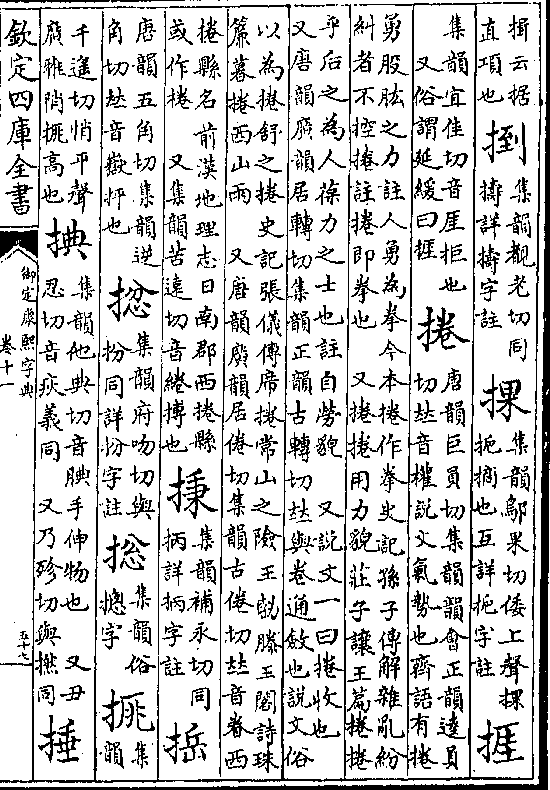 揖云据
直項也
捯
集韻覩老切同
擣詳擣字註
捰
集韻鄔果切倭上聲捰
扼摘也互詳扼字註
捱
集韻宜佳切音厓拒也
又俗謂延緩曰捱
捲
唐韻巨員切集韻韻會正韻逵員
切𠀤音權說文氣勢也齊語有捲
勇股肱之力註人勇為拳今本捲作拳史記孫子傳解雜亂紛
糾者不控捲註捲即拳也 又捲捲用力貌莊子讓王篇捲捲
乎后之為人葆力之士也註自勞貌 又說文一曰捲收也
又唐韻廣韻居轉切集韻正韻古轉切𠀤與卷通斂也說文俗
以為捲舒之捲史記張儀傳席捲常山之險王勃滕王閣詩珠
簾暮捲西山雨 又唐韻廣韻居倦切集韻古倦切𠀤音眷西
捲縣名前漢地理志日南郡西捲縣
或作捲 又集韻苦遠切音綣摶也
集韻補永切同
柄詳柄字註
捳
唐韻五角切集韻逆
角切𠀤音嶽抨也
集韻府吻切與
扮同詳扮字註
捴
集韻俗
摠字
集
韻
千遙切悄平聲
廣雅陗高也
捵
集韻他典切音腆手伸物也 又丑
忍切音疢義同 又乃殄切與撚同
捶
欽定四庫全書
御定康熙字典
卷十一
五十七